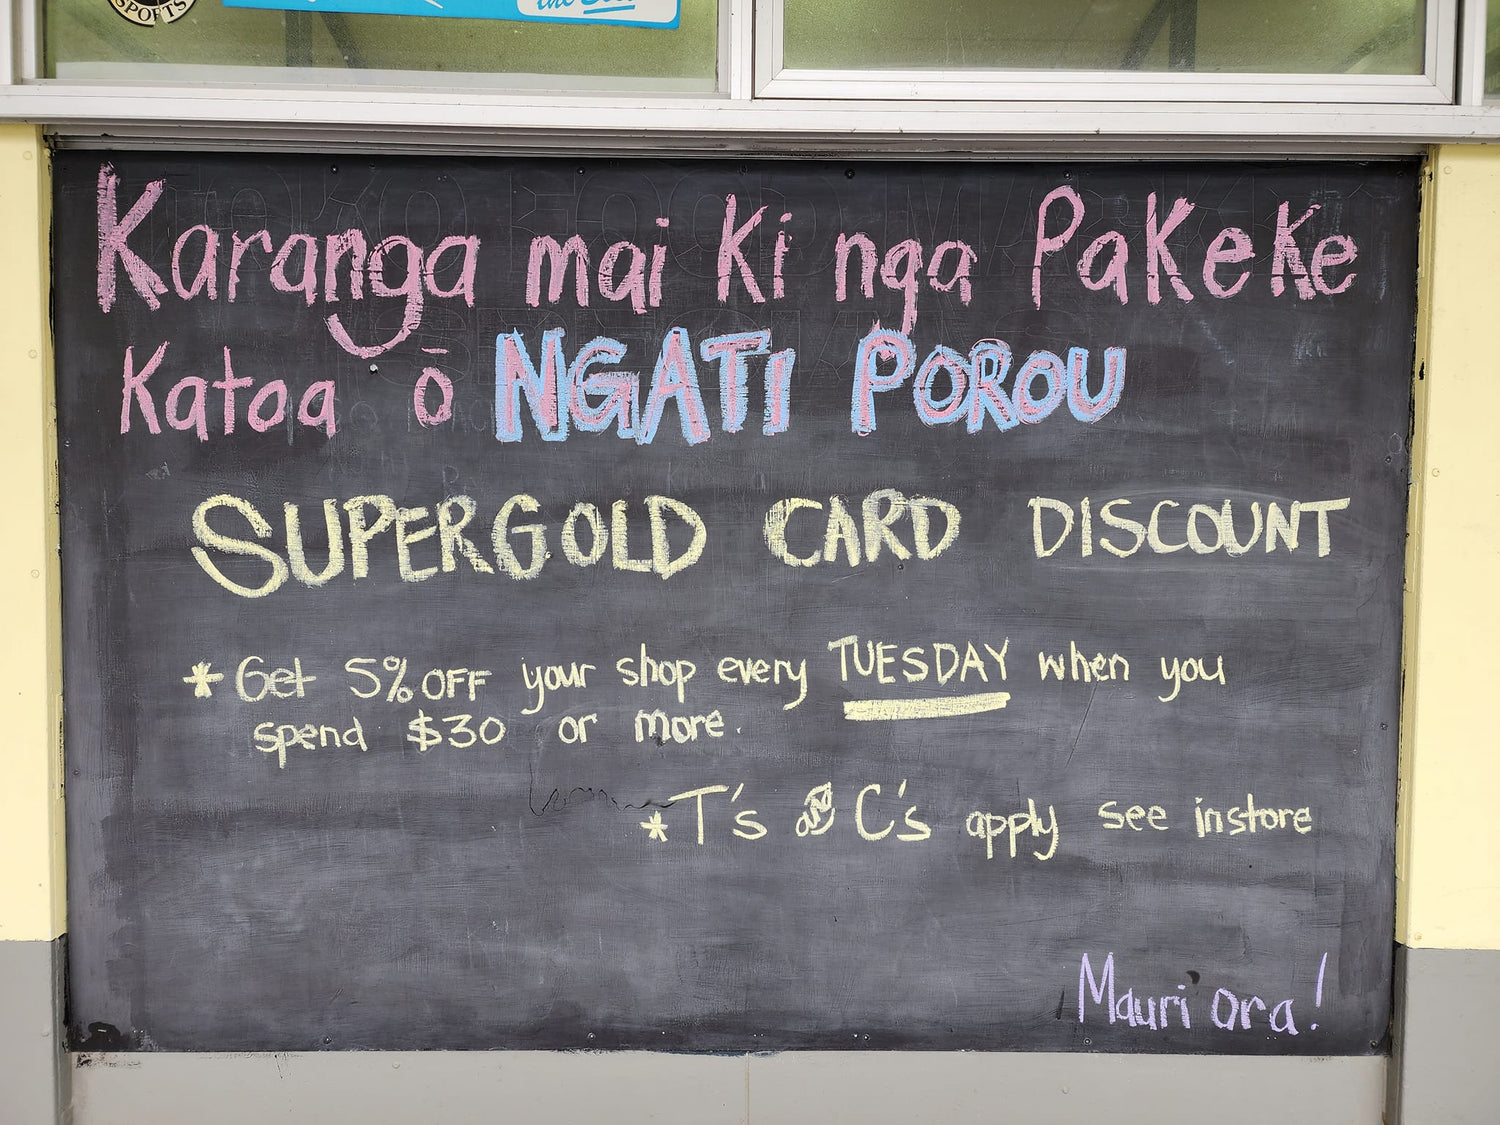 SPORTS
Karanga mai ki nga Pakeke
Katoa ō NGATI POROU
SUPERGOLD CARD DISCOUNT
* Get 5% OFF your shop every TUESDAY when you
spend $30 or more.
* T's and C's apply see instore
Mauri ora!